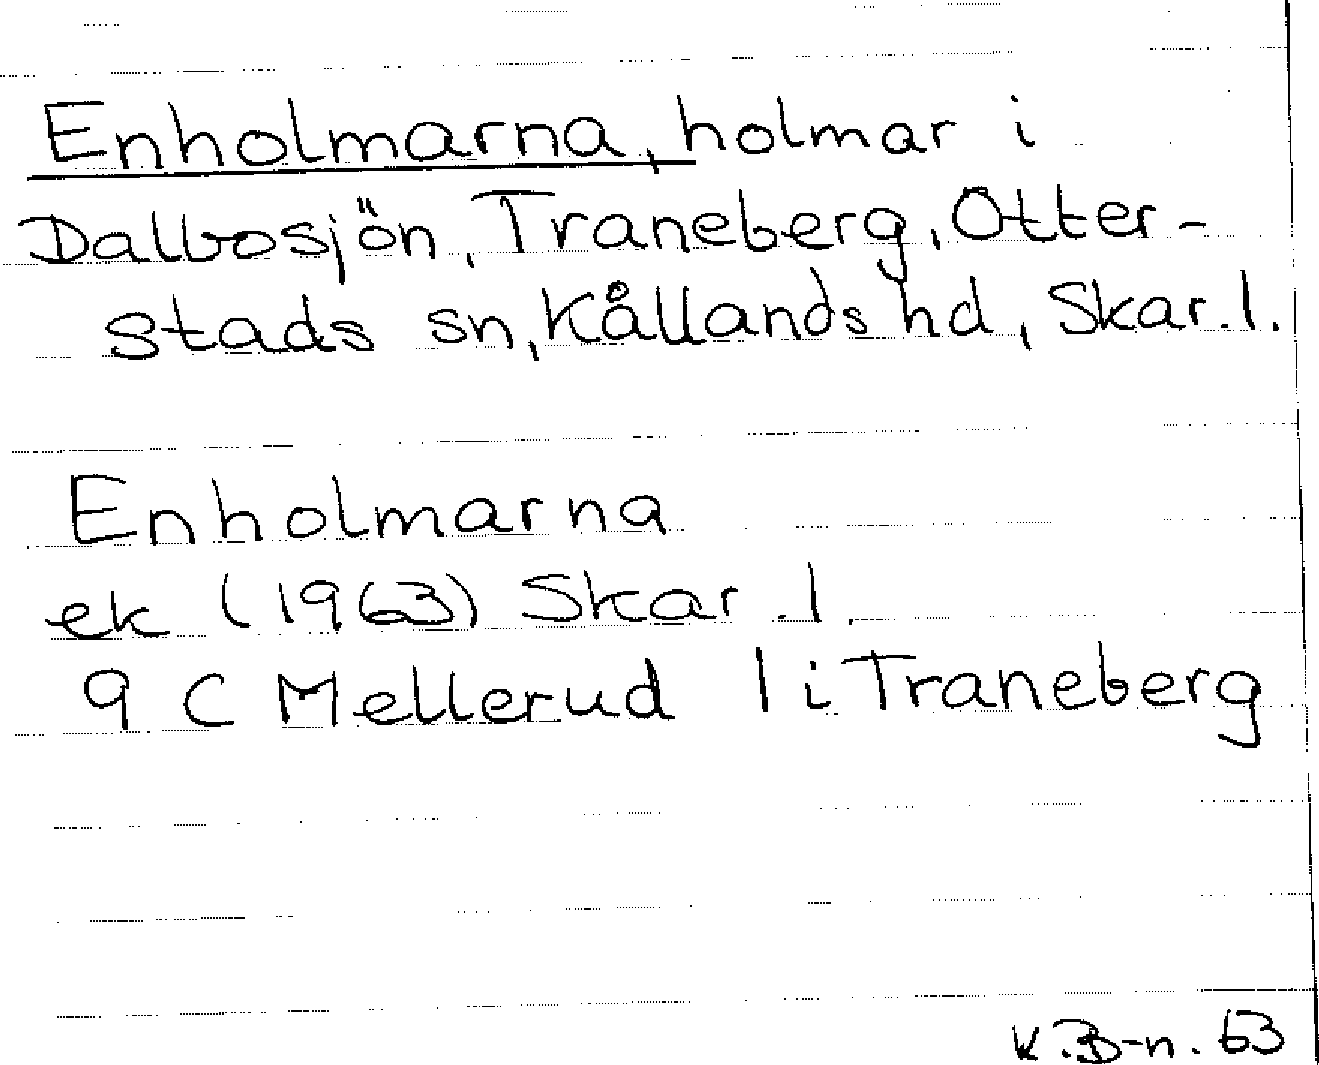 Enholmarna, holmar i
Dalbosjön, Traneberg, Otter-
stads sn, Kållands hd, Skar. l.
Enholmarna
ek (1963) Skar. l.
9 C Mellerud 1 i Traneberg
K. B-n. 63